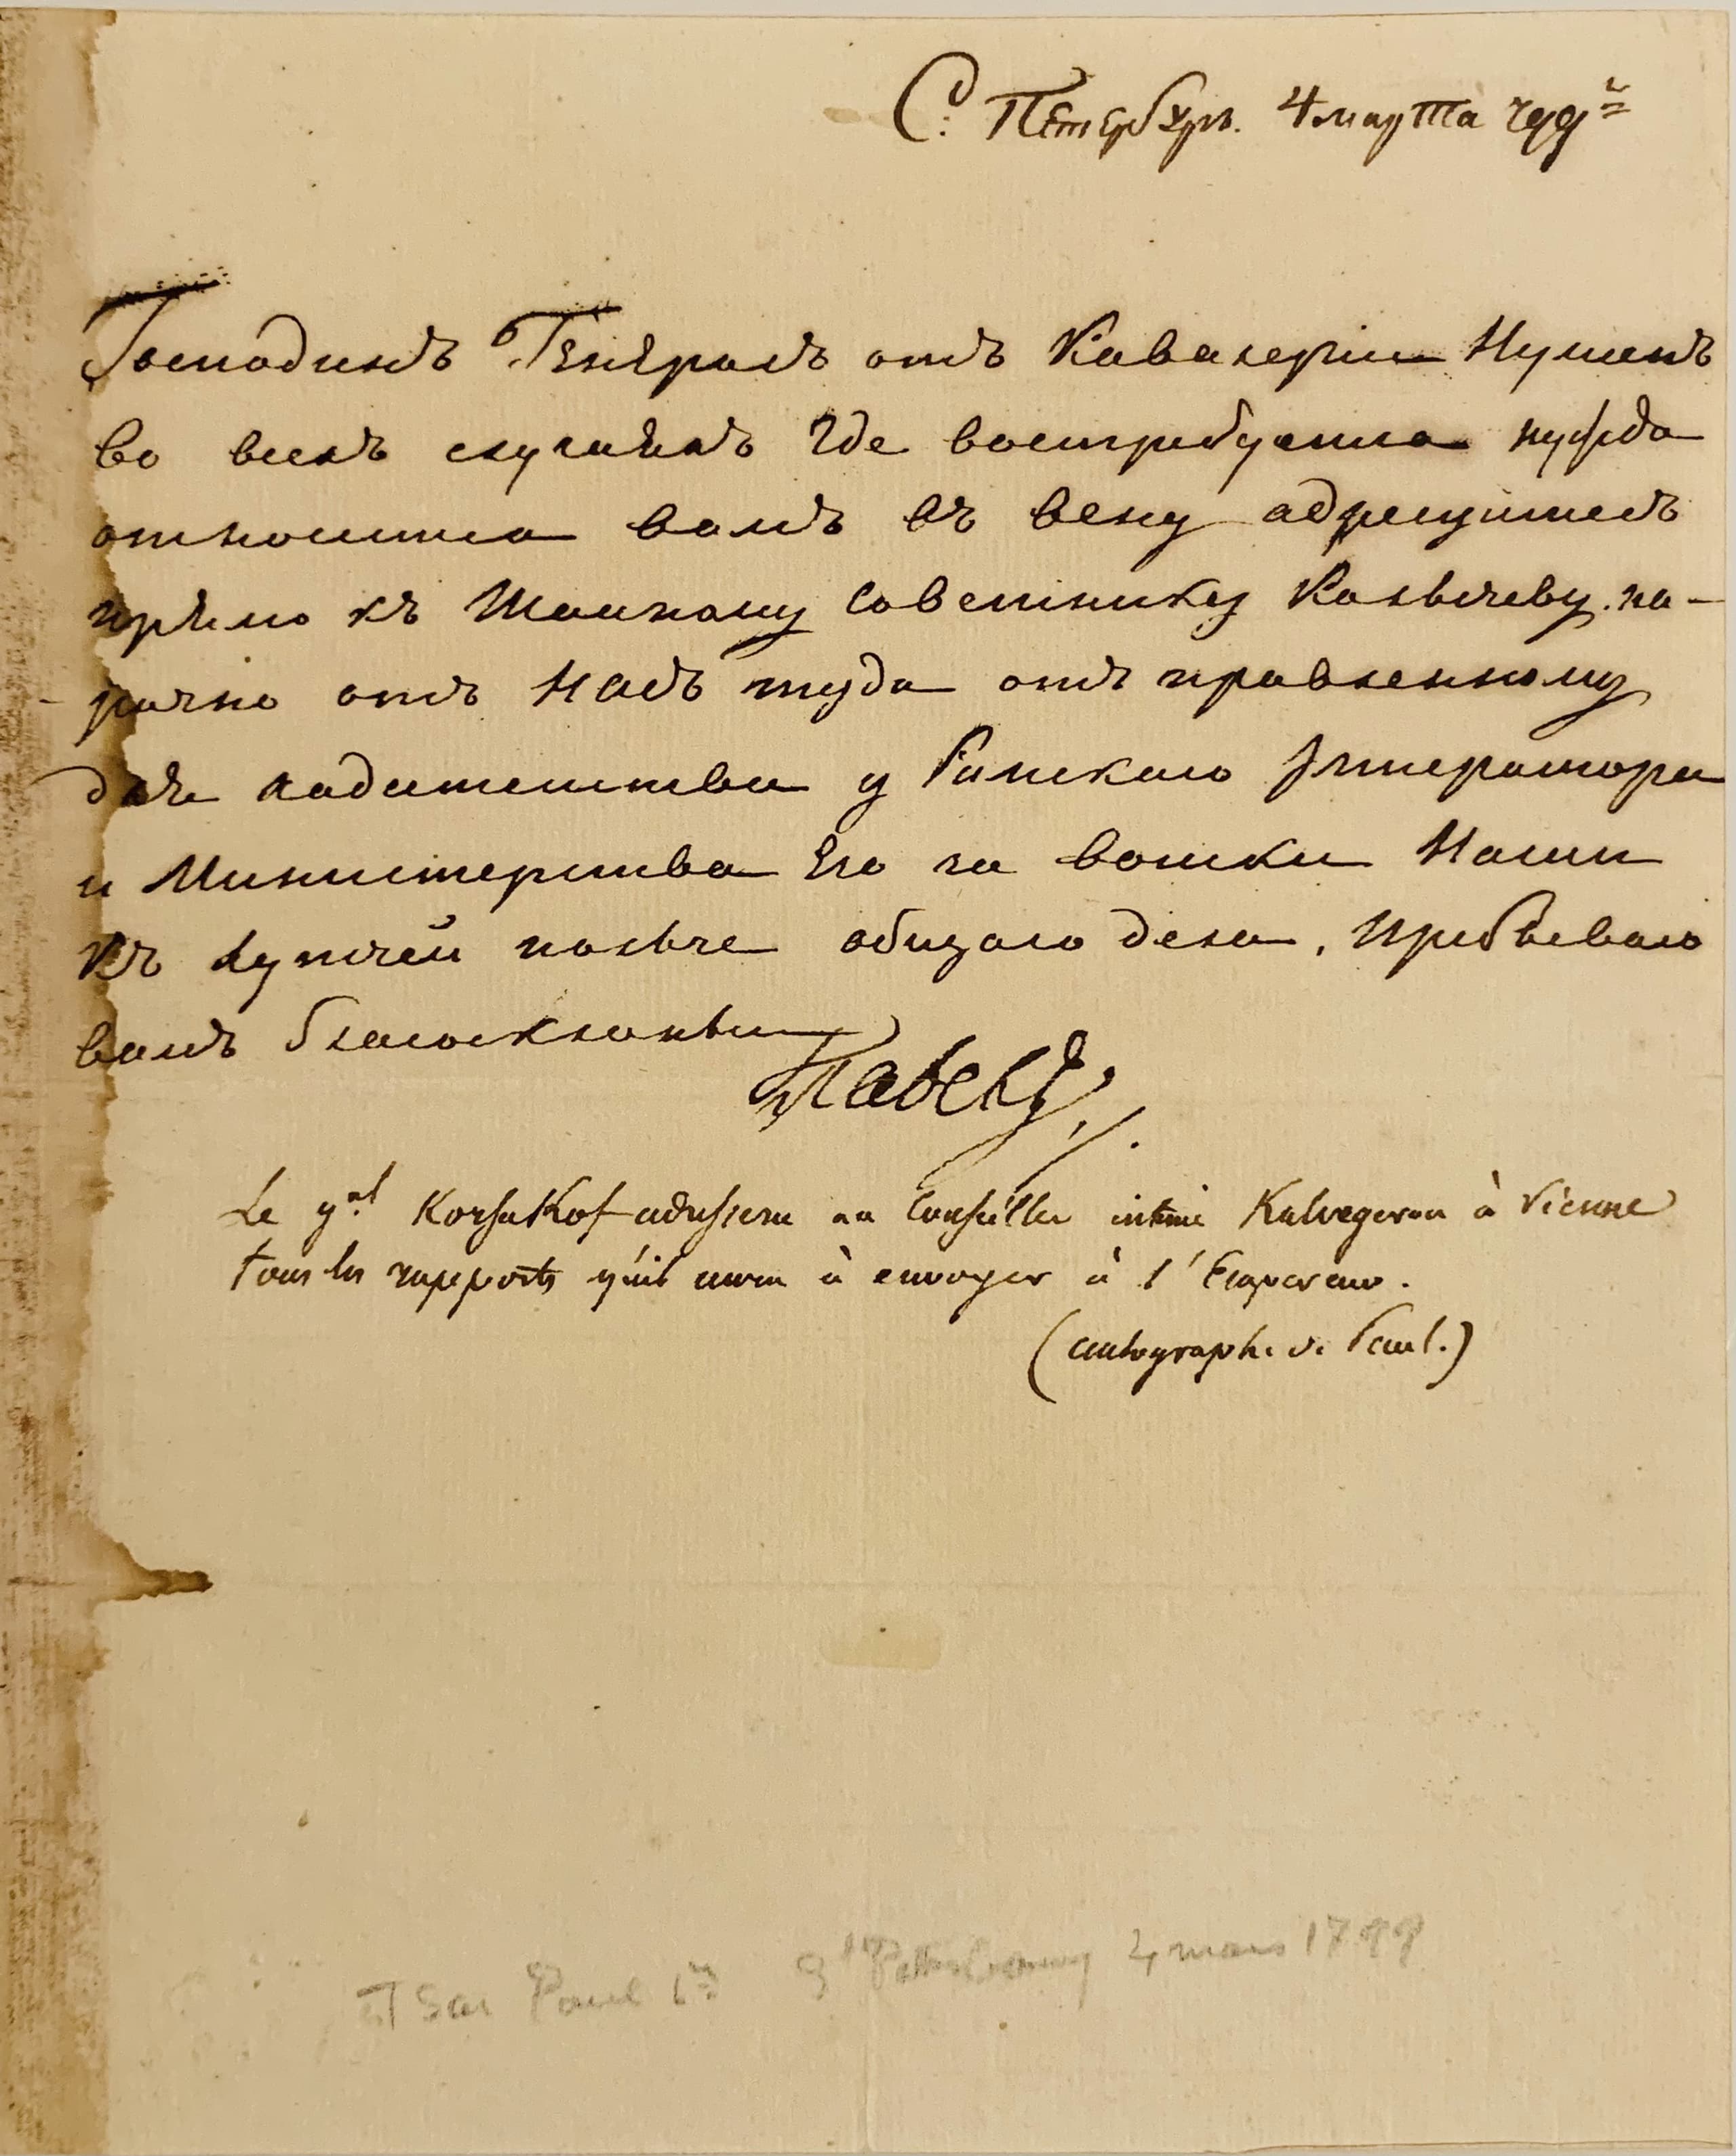 С: Петербург. 4 марта 799 =
Господинъ Генералъ отъ Кавалеріи Нуменъ
во всехъ случаяхъ где вострибуется нужда
относится вамъ въ вену адресуитесъ
прямо къ Таиному Советнику Колычеву, на-
- рочно отъ Насъ туда отъ правленному
для ходатетства у Римскаго Імператора
и Министерства Его за воиски Наши
къ лутчей ползе общаго дела. Пребываю
вамъ благосклонны
Павелъ
Le g.al Korsakof adressera au Conseiller intime Kalvegeron à Vienne
tous les rapports qu'il aura à envoyer à l'Empereur.
(autograph. v. Paul.)
Tsar Paul 1er St Petersbourg 4 mars 1799